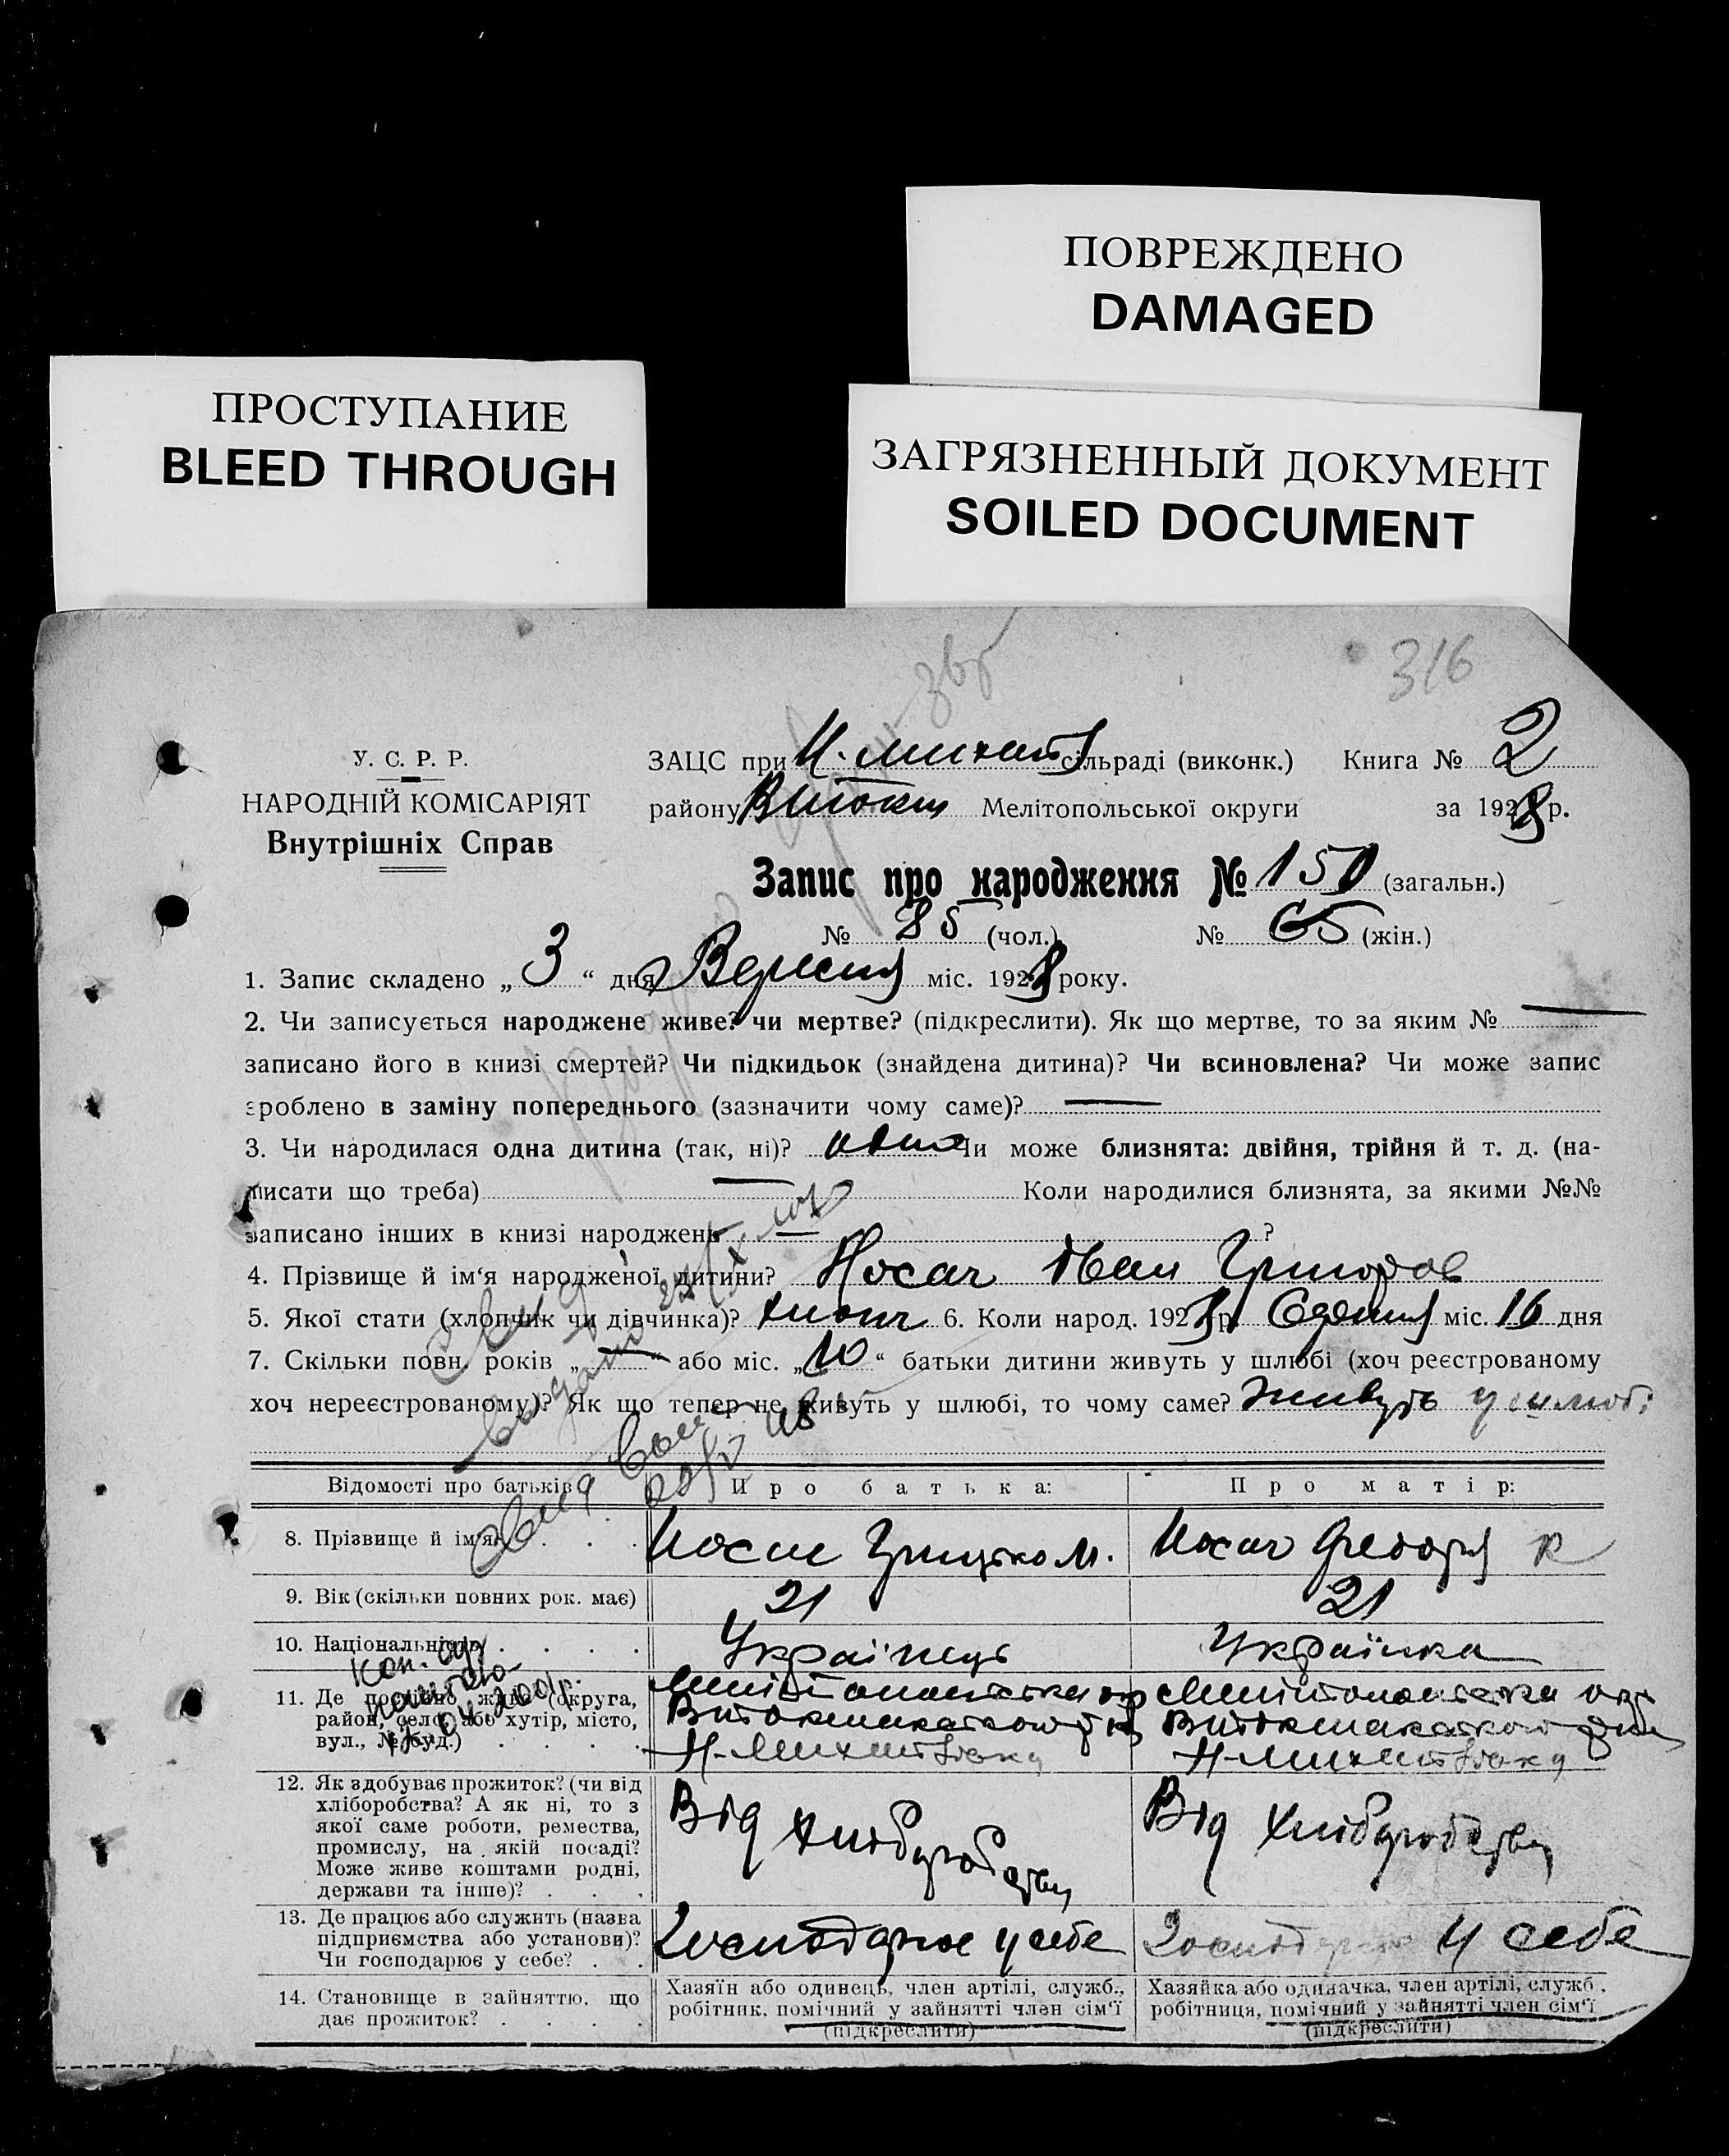 ПОВРЕЖДЕНО
DAMAGED
ПРОСТУПАНИЕ
BLEED THROUGH
ЗАГРЯЗНЕННЫЙ ДОКУМЕНТ
SOILED DOCUMENT
316
У. С. Р. Р.
НАРОДНІЙ КОМІСАРІЯТ
Внутрішніх Справ
ЗАЦС при сільраді (виконк.) Книга № 2
району Мелітопольської округи за 1928 р.
Запис про народження № 150 (загальн.)
№ 85 (чол.) № 65 (жін.)
1. Запис складено „ 3 “ дня Вересня міс. 1928 року.
2. Чи записується народжене живе? чи мертве? (підкреслити). Як що мертве, то за яким № —
записано його в книзі смертей? Чи підкидьок (знайдена дитина)? Чи всиновлена? Чи може запис
зроблено в заміну попереднього (зазначити чому саме)? —
3. Чи народилася одна дитина (так, ні)? одна Чи може близнята: двійня, трійня й т. д. (на-
писати що треба) — Коли народилися близнята, за якими №№
записано інших в книзі народжень — ?
4. Прізвище й ім‘я народженої дитини? Носач Іван Григоров
5. Якої стати (хлопчик чи дівчинка)? хлопч 6. Коли народ. 1928 р. Серпня міс. 16 дня
7. Скільки повн. років „ — “ або міс. „ 10 “ батьки дитини живуть у шлюбі (хоч реєстрованому
хоч нереєстрованому)? Як що тепер не живуть у шлюбі, то чому саме? Живуть у шлюбі
Відомості про батьків Про батька: Про матір:
8. Прізвище й ім‘я Носач Грицько М. Носач
9. Вік (скільки повних рок. має) 21 21
10. Національність Українець Українка
11. Де постійно живе (округа,
район, село, або хутір, місто,
вул., № буд.)
12. Як здобуває прожиток? (чи від
хліборобства? А як ні, то з
якої саме роботи, ремества,
промислу, на якій посаді?
Може живе коштами родні,
держави та інше)?
Від хліборобства Від хліборобства
13. Де працює або служить (назва
підприємства або установи)?
Чи господарює у себе?
Господарює у себе Господарює у себе
14. Становище в зайняттю, що
дає прожиток?
Хазяїн або одинець, член артілі, служб.,
робітник, помічний у зайнятті член сім‘ї
(підкреслити)
Хазяйка або одиначка, член артілі, служб.,
робітниця, помічний у зайнятті член сім‘ї
(підкреслити)